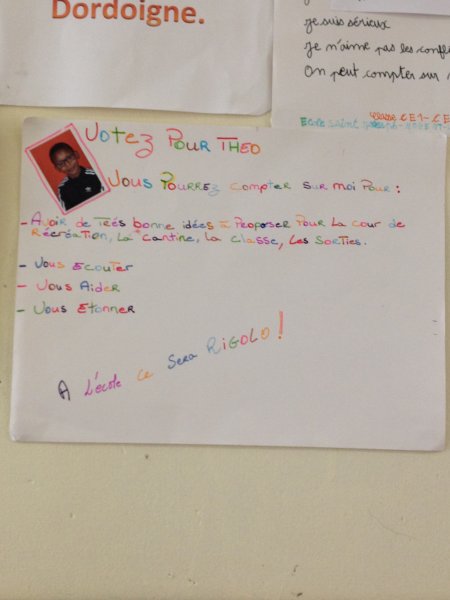 Dordoigne.
je suis sérieux
Je n'aime pas les confl
On peut compter sur
Ecole saint Joseph
classe CE1-CE
Votez Pour THEO
Vous Pourrez compter sur moi pour :
- Avoir de très bonne idées à Proposer Pour La cour de
Récréation, La cantine, la classe, Les sorties.
- Vous Ecouter
- Vous Aider
- Vous Etonner
A L'école ce sera RIGOLO !